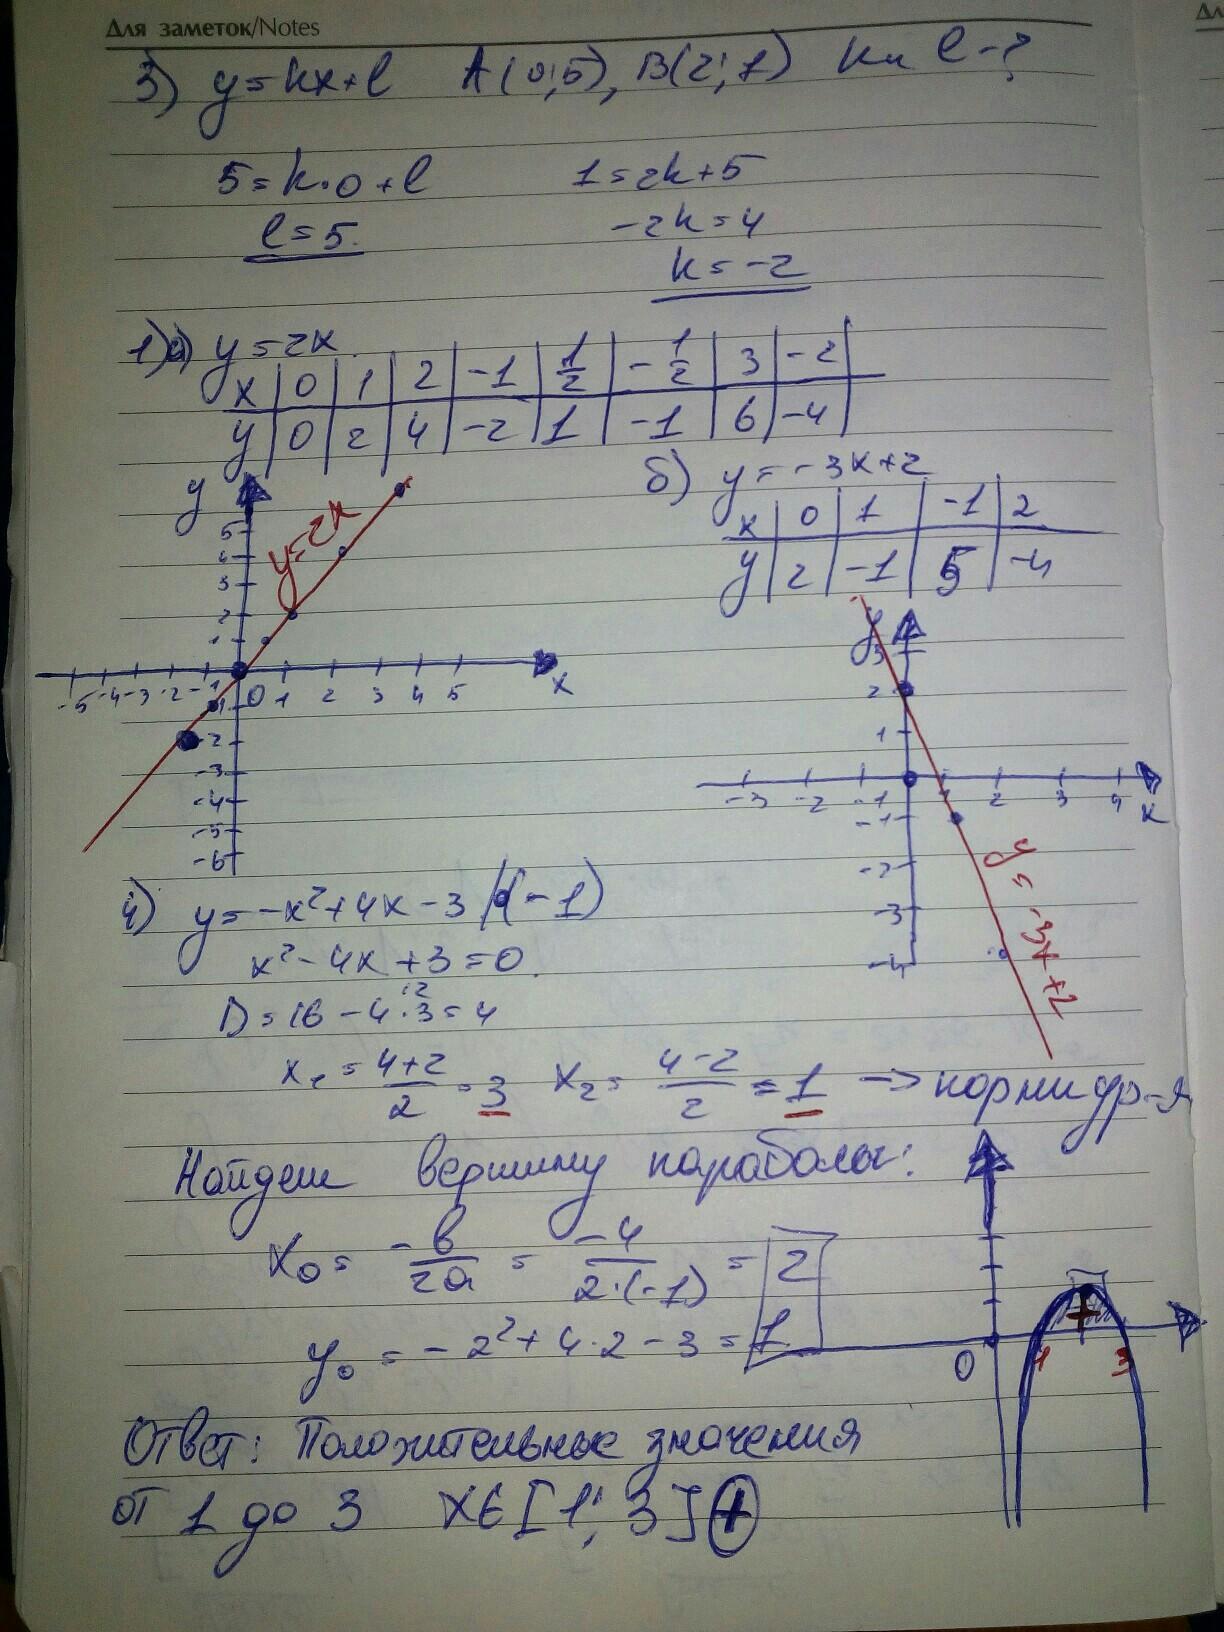 Для заметок/Notes
3) y=kx+l A(0;5), B(2;1) k и l-?
5=k·0+l 1=2k+5
l=5. -2k=4
k=-2
1)а) y=2x
x | 0 | 1 | 2 | -1 | 1/2 | -1/2 | 3 | -2
y | 0 | 2 | 4 | -2 | 1 | -1 | 6 | -4
б) y=-3x+2
x | 0 | 1 | -1 | 2
y | 2 | -1 | 5 | -4
y
y=2x
5
4
3
2
1
-5 -4 -3 -2 -1 0 1 2 3 4 5 x
-1
-2
-3
-4
-5
-6
y
3
2
1
-3 -2 -1 1 2 3 4 x
-1
-2
-3
-4
y=-3x+2
4) y=-x²+4x-3 |·(-1)
x²-4x+3=0.
D=16-4·3=4
12
x₁=(4+2)/2=3 x₂=(4-2)/2=1 → корни ур-я
Найдем вершину параболы:
x₀=-b/2a=-4/2·(-1)=2
y₀=-2²+4·2-3=1
+
0 1 3
Ответ: Положительные значения
от 1 до 3 X∈[1; 3] +